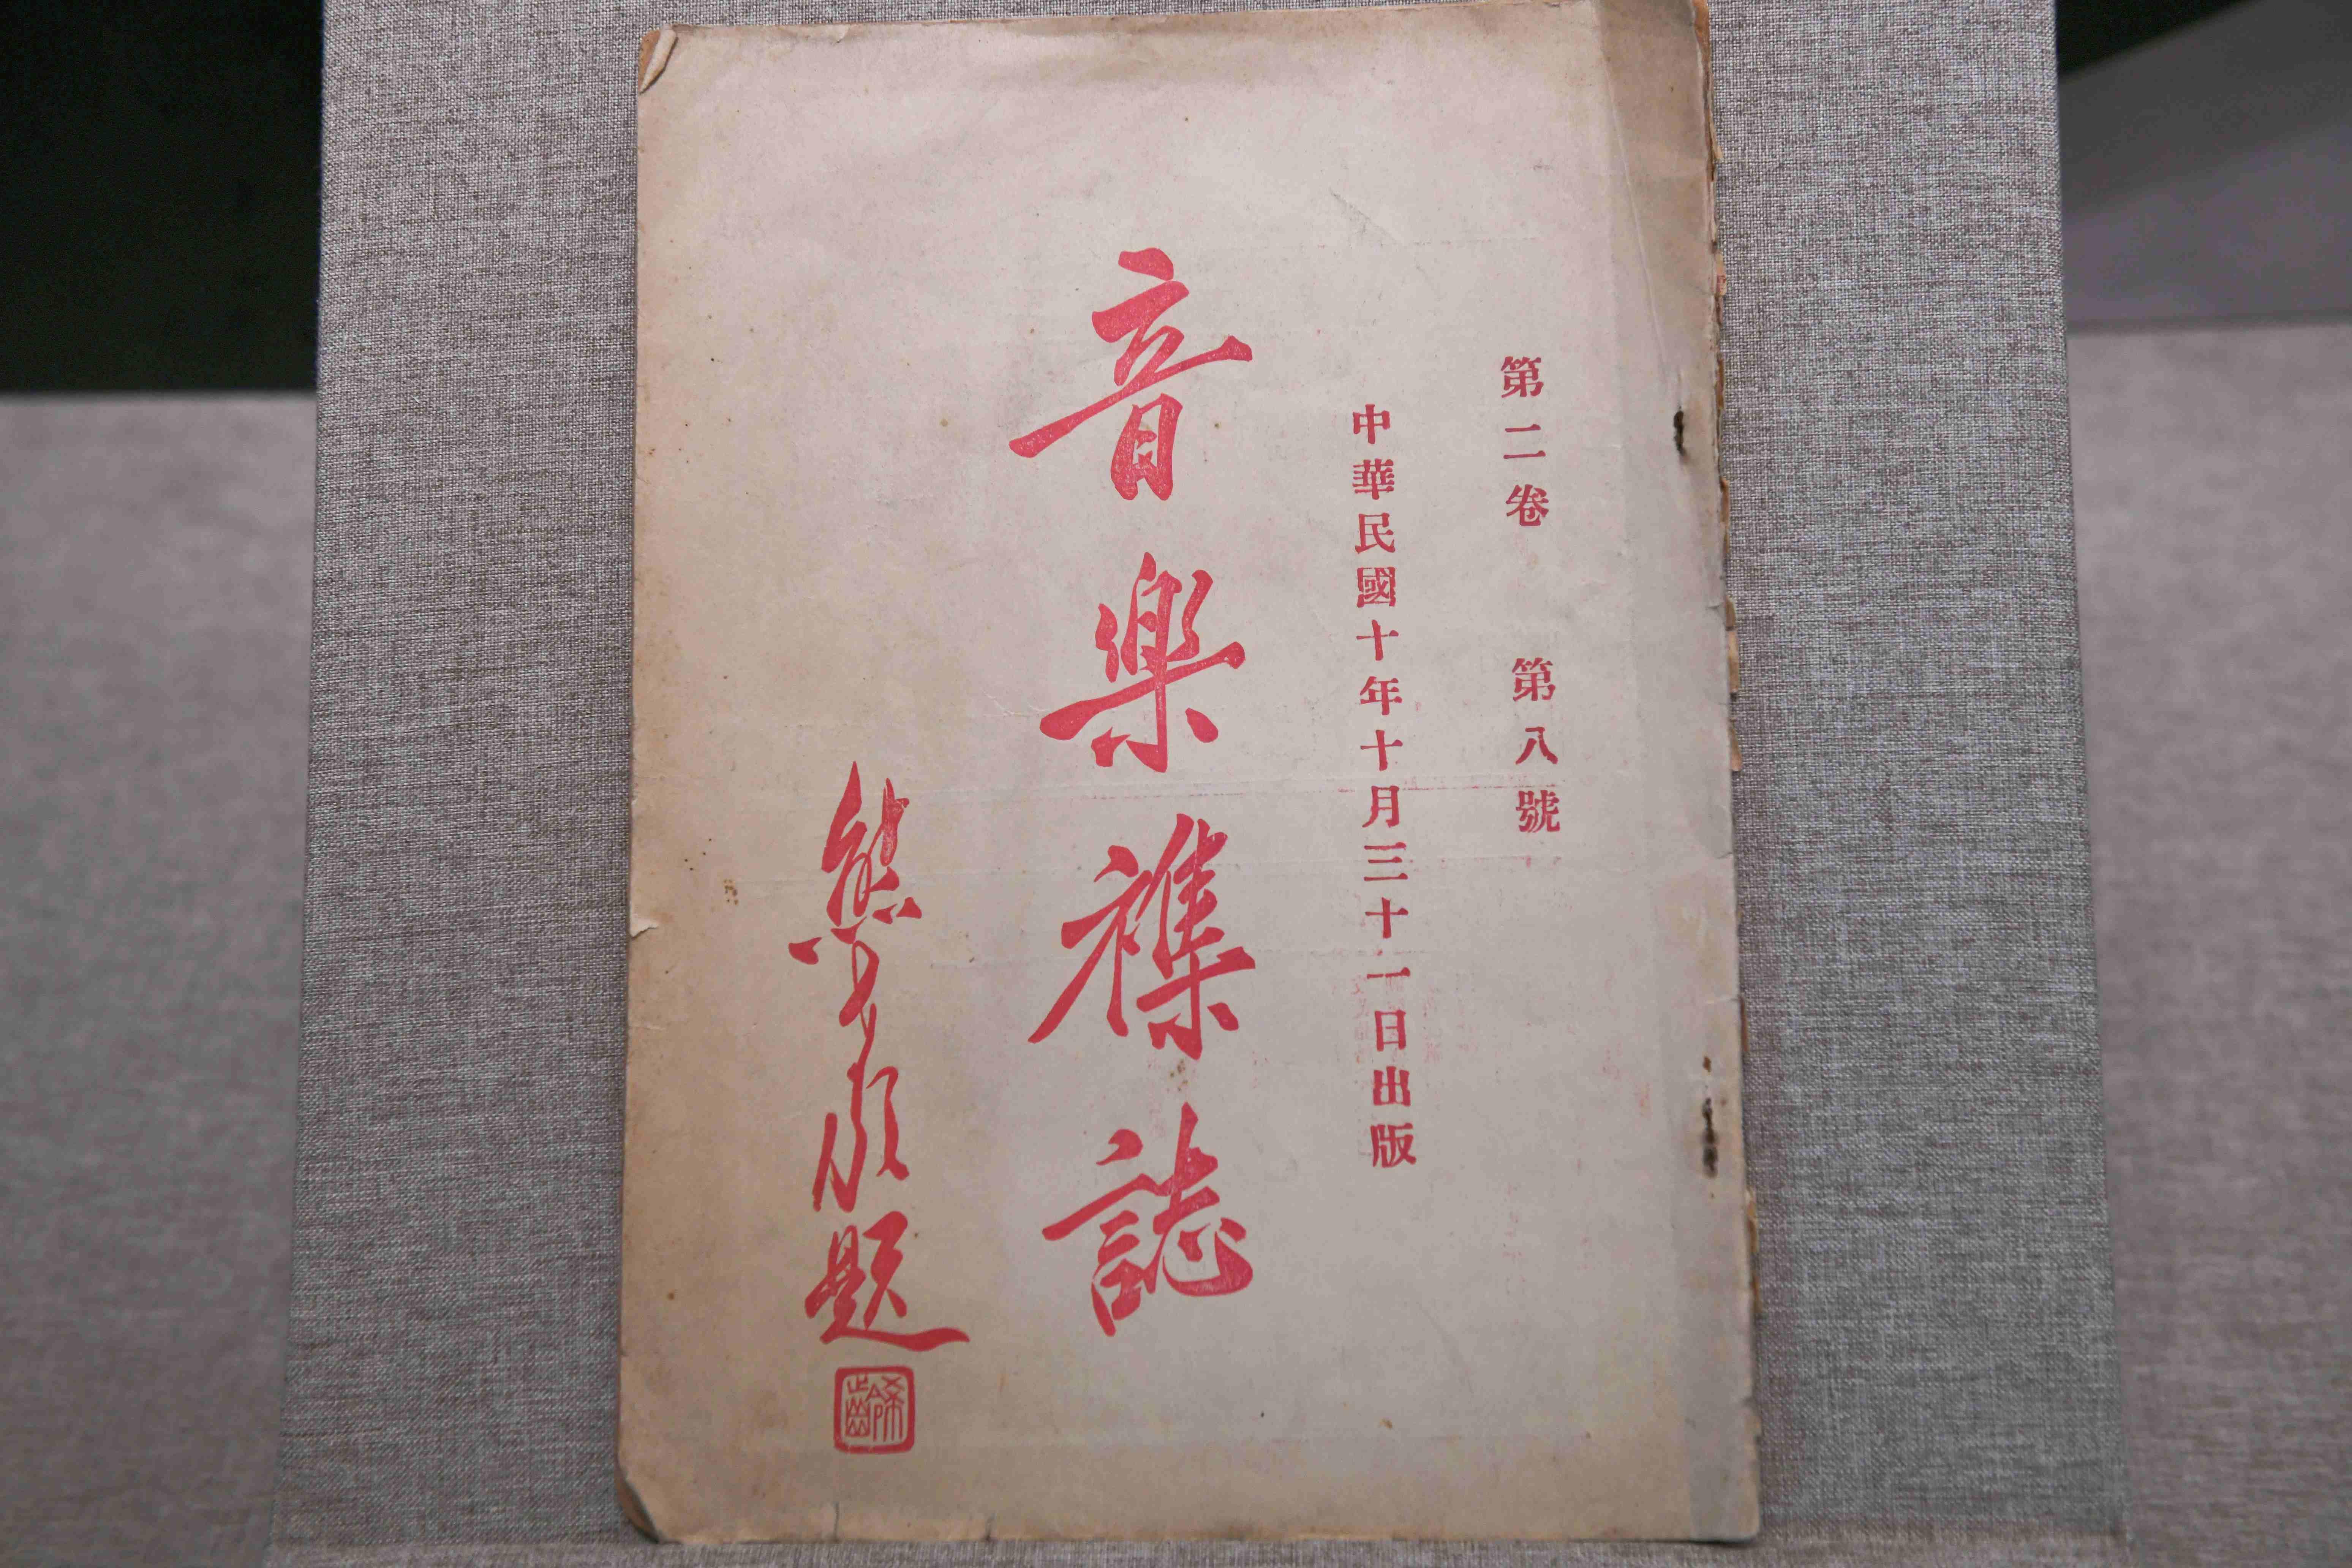 第二卷 第八號
中華民國十年十月三十一日出版
音樂襍誌
熊希齡題
希齡